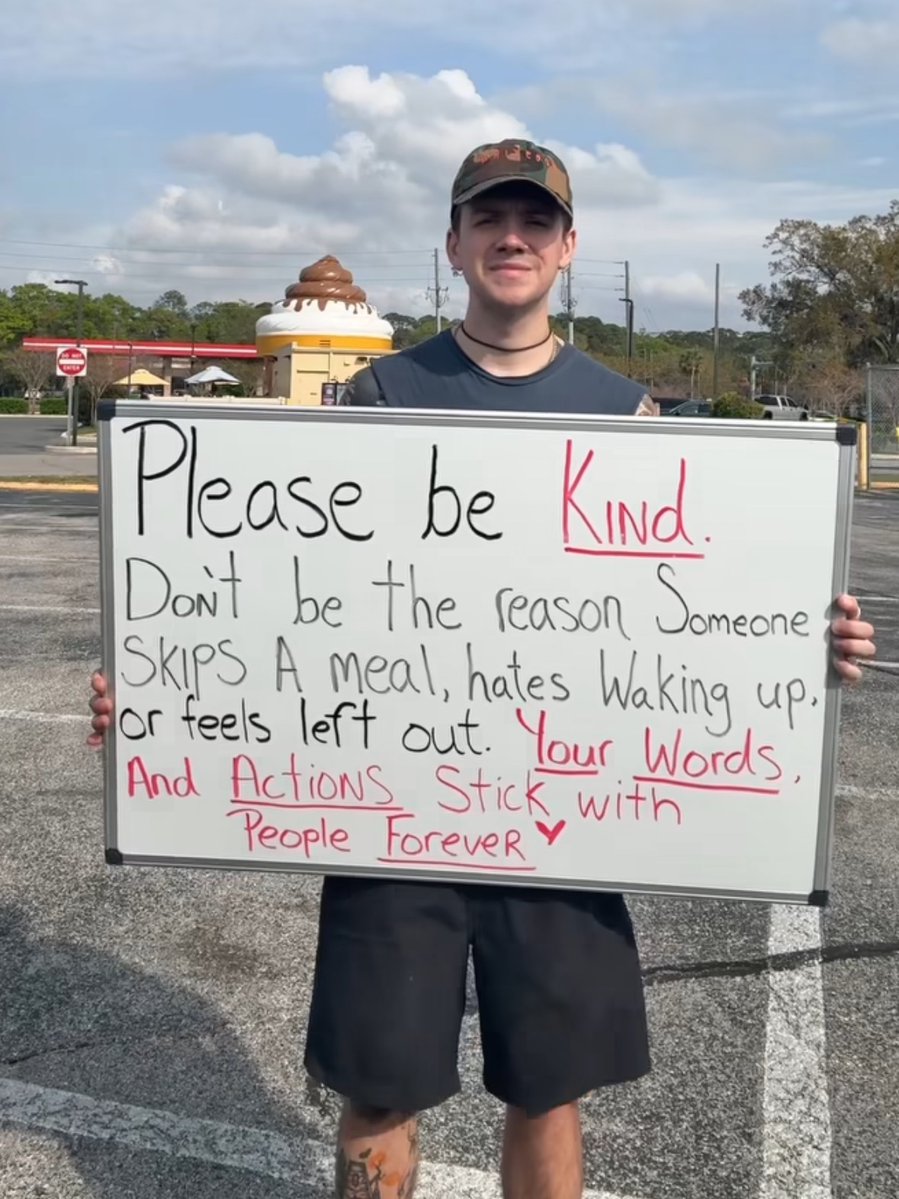 DO NOT
ENTER
Please be Kind.
Don't be the reason Someone
Skips A meal, hates Waking up,
or feels left out. Your Words,
And Actions Stick with
People Forever